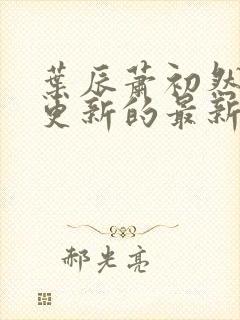 葉辰蕭初然
更新的最新
郝光亮